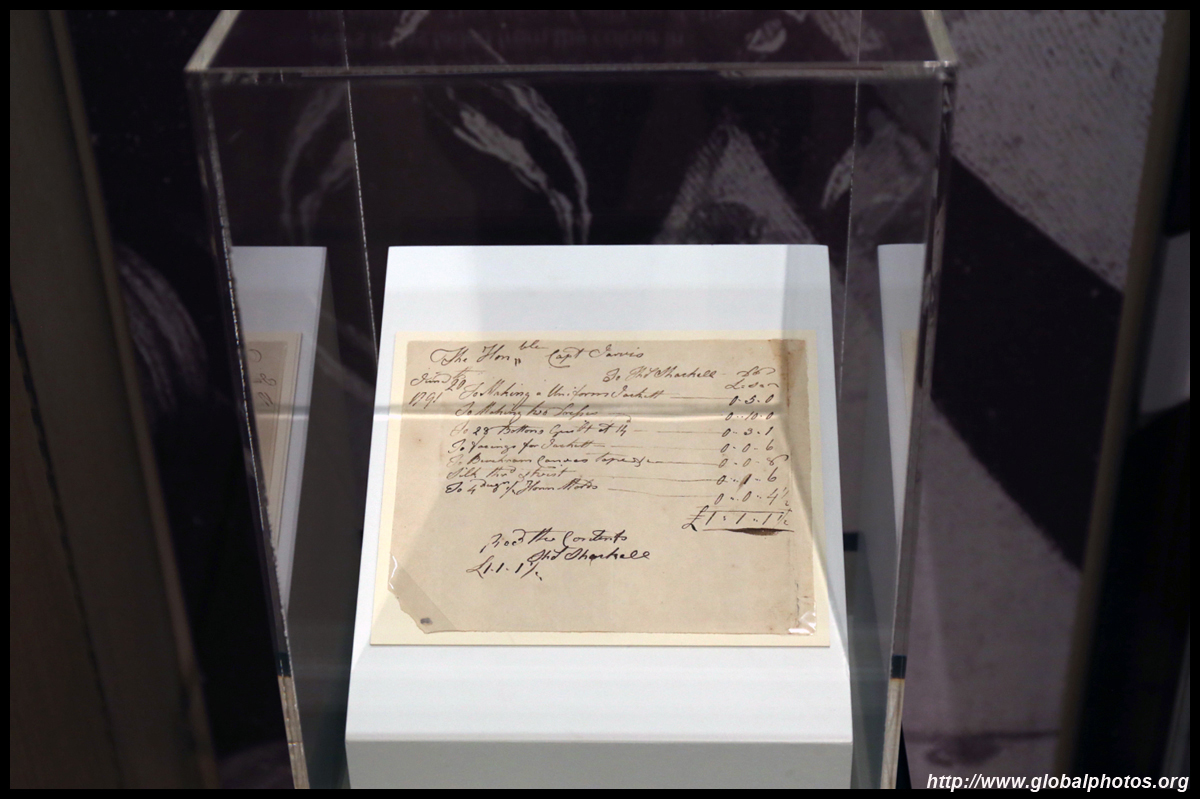 The Hon,, ble Capt Jarvis
To Thd Shackell Dr
June 20th £ s D
1791 To Making a Uniform Jackett 0 - 5 - 0
To Making two 0 - 10 - 0
To 28 Buttons Guilt at 0 - 3 - 1
To Facings for Jackett 0 - 0 - 6
To Buckram Canvas tape &c 0 - 0 - 8
Silk thrd & twist 0 - 1 - 6
To 4 0 - 0 - 4 1/2
£1 - 1 - 1 1/2
Recd the Contents
Thd Shackell
£1 - 1 - 1 1/2
http://www.globalphotos.org